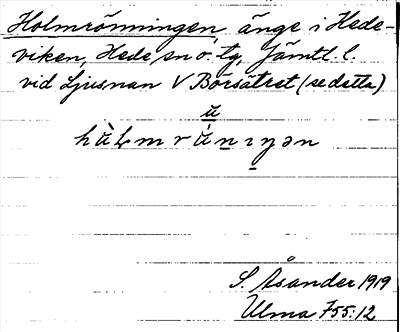 Holmrönningen, änge i Hede-
viken, Hede sn o. tg, Jämtl. l.
vid Ljusnan V Börsätret (se detta)
ȧ̀
hȧ̀Lmrȧ̀nıŋən
S. Åsander 1919
Ulma 755:12